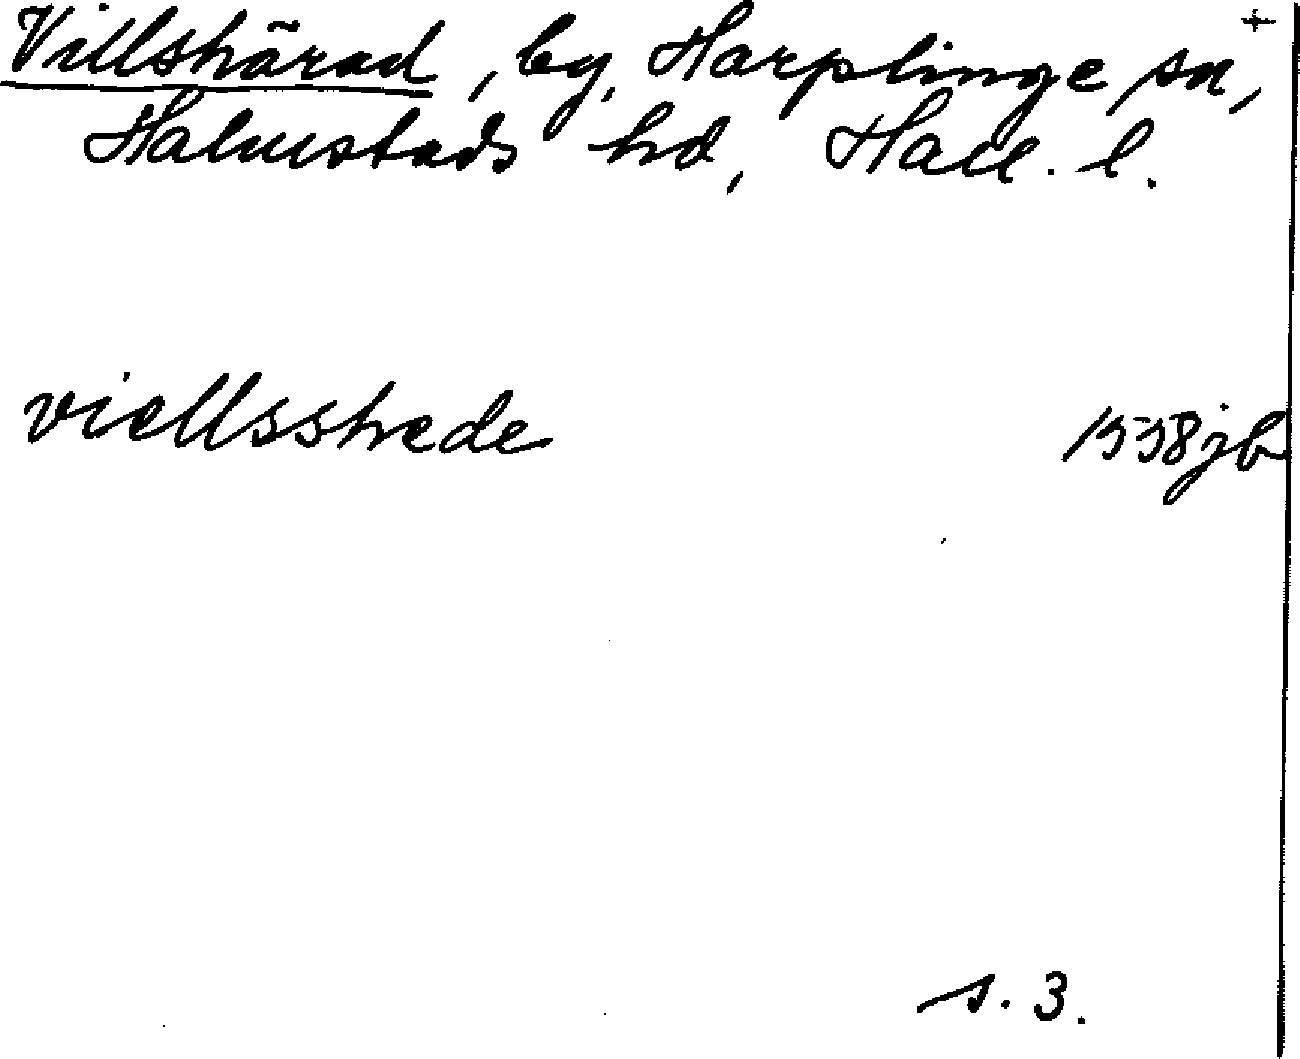 Villshärad, by, Harplinge sn, +
Halmstads hd, Hall. l.
viellsshrede 1558 jb
s. 3.